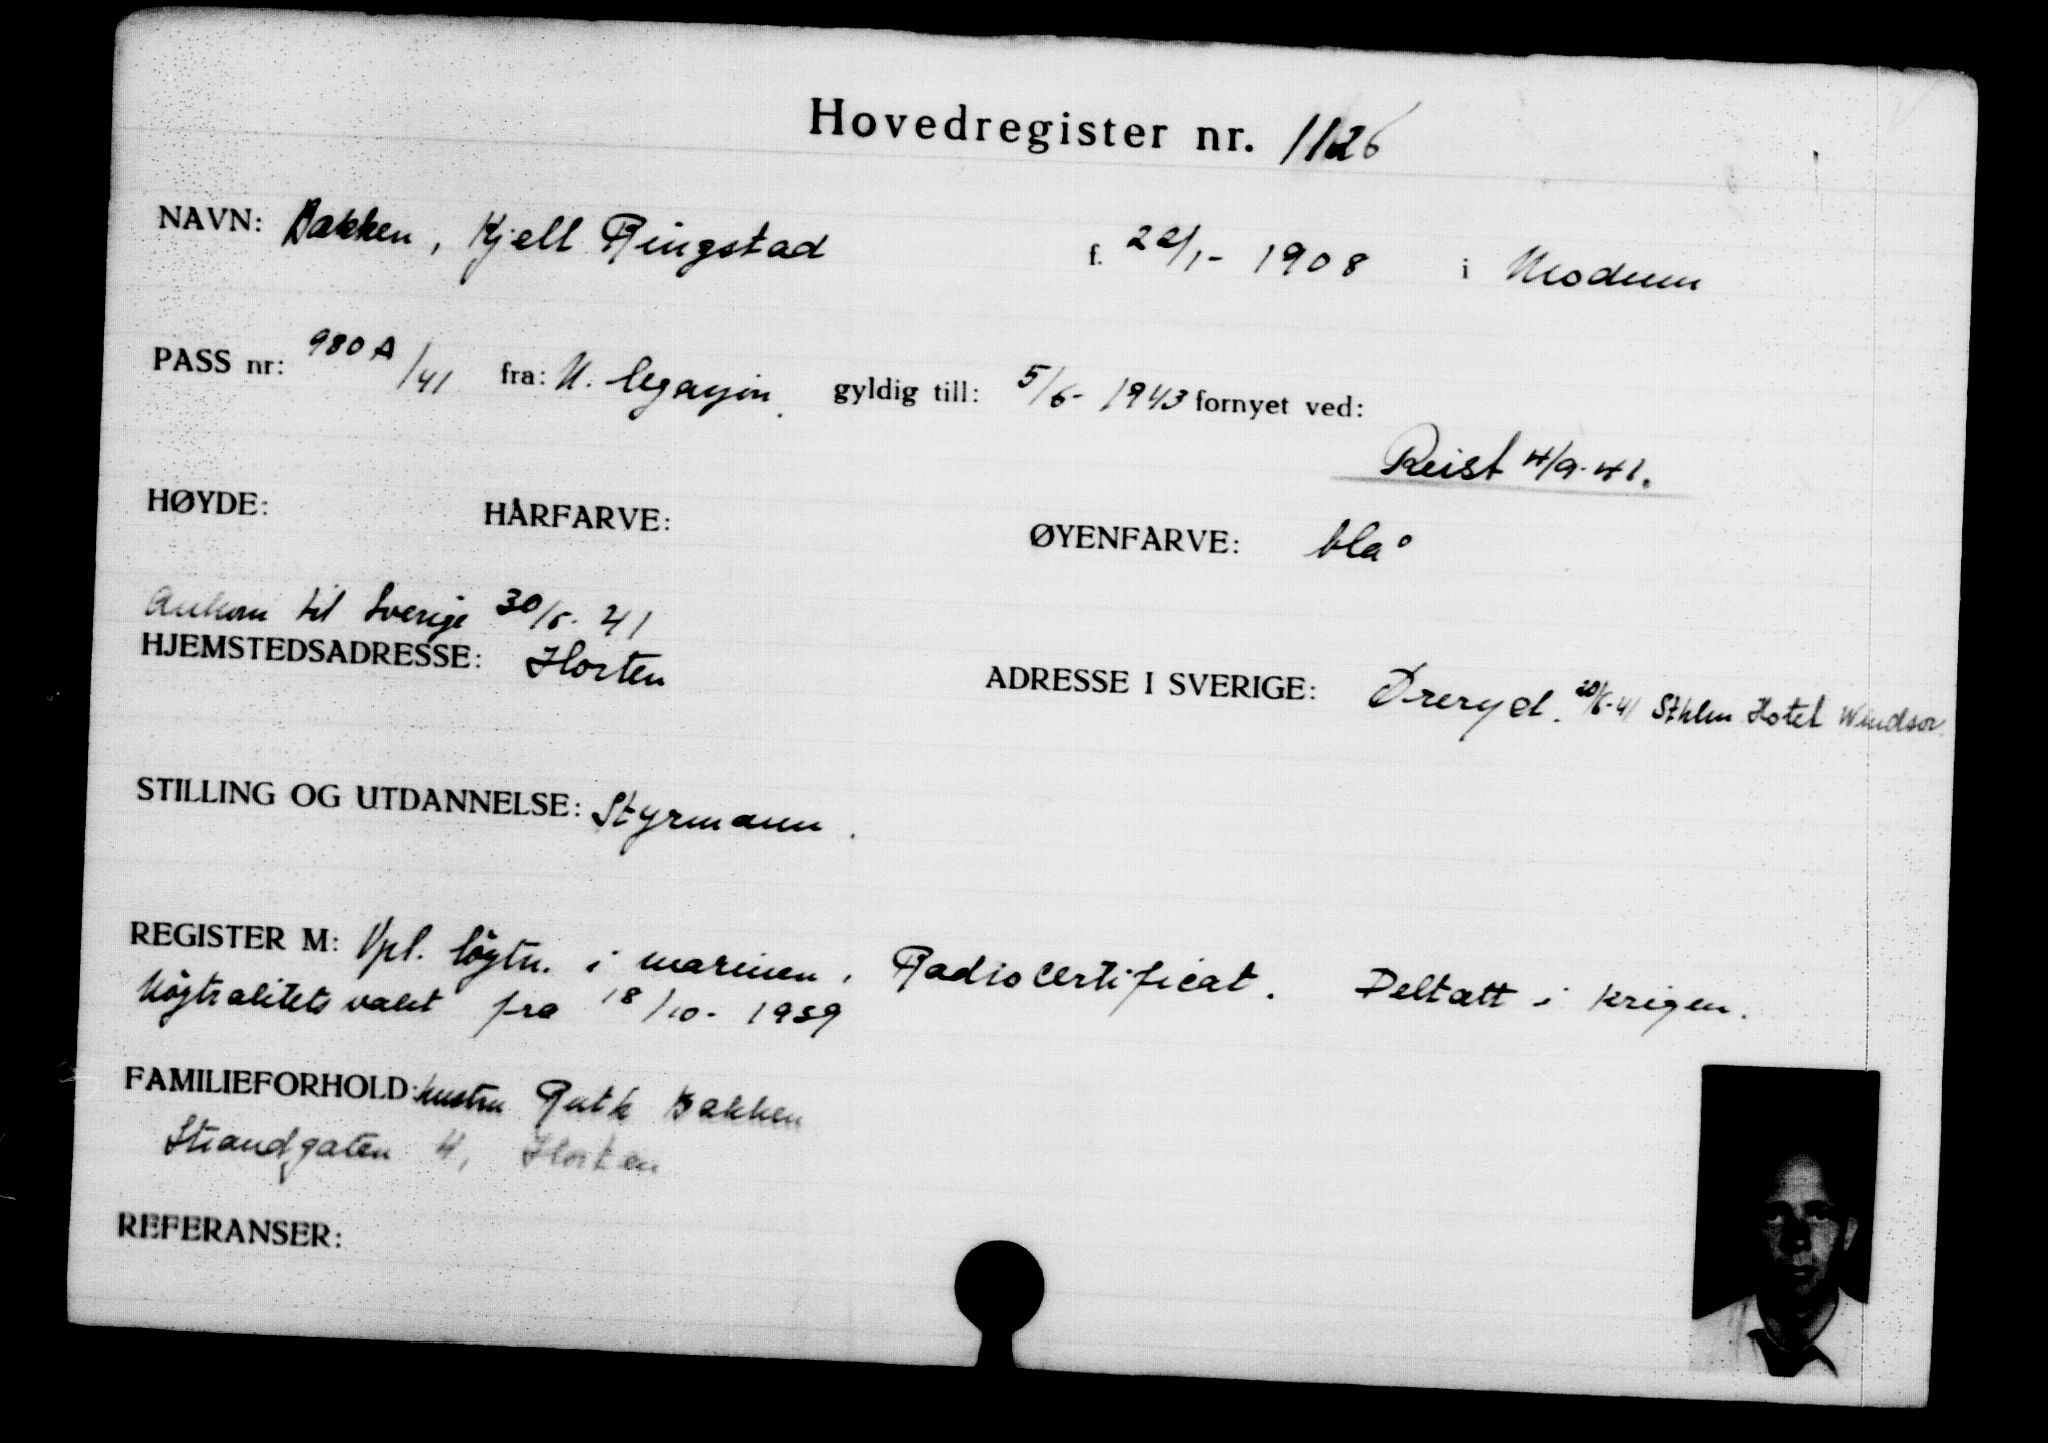 Hovedregister nr. 1126
NAVN: Bakken, Kjell Ringstad f. 22/1- 1908 i Modum
PASS nr: 980A/41 fra: N. legasjon. gyldig till: 5/6- 1943 fornyet ved:
Reist 4/9-41.
HØYDE: HÅRFARVE: ØYENFARVE: blå
Ankom til Sverige 30/5-41
HJEMSTEDSADRESSE: Horten ADRESSE I SVERIGE: Øreryd. 20/6-41 Sthlm Hotel Windsor.
STILLING OG UTDANNELSE: Styrmann.
REGISTER M: Vpl. løytn. i marinen. Radiocertificat. Deltatt i krigen.
Nøytralitetsvakt fra 18/10- 1939
FAMILIEFORHOLD: hustru Ruth Bakken
Strandgaten 4, Horten
REFERANSER: